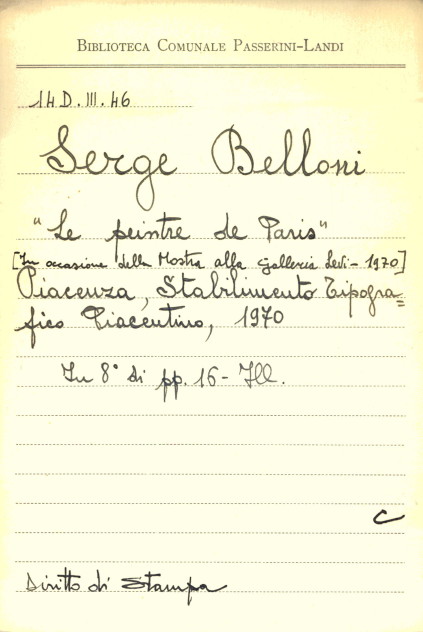 BIBLIOTECA COMUNALE PASSERINI-LANDI
14 D. III. 46
Serge Belloni
"Le peintre de Paris"
[In occasione della Mostra alla Galleria Levi - 1970]
Piacenza, Stabilimento Tipogra=
fico Piacentino, 1970
In 8° di pp. 16 - Ill.
C
Diritto di Stampa